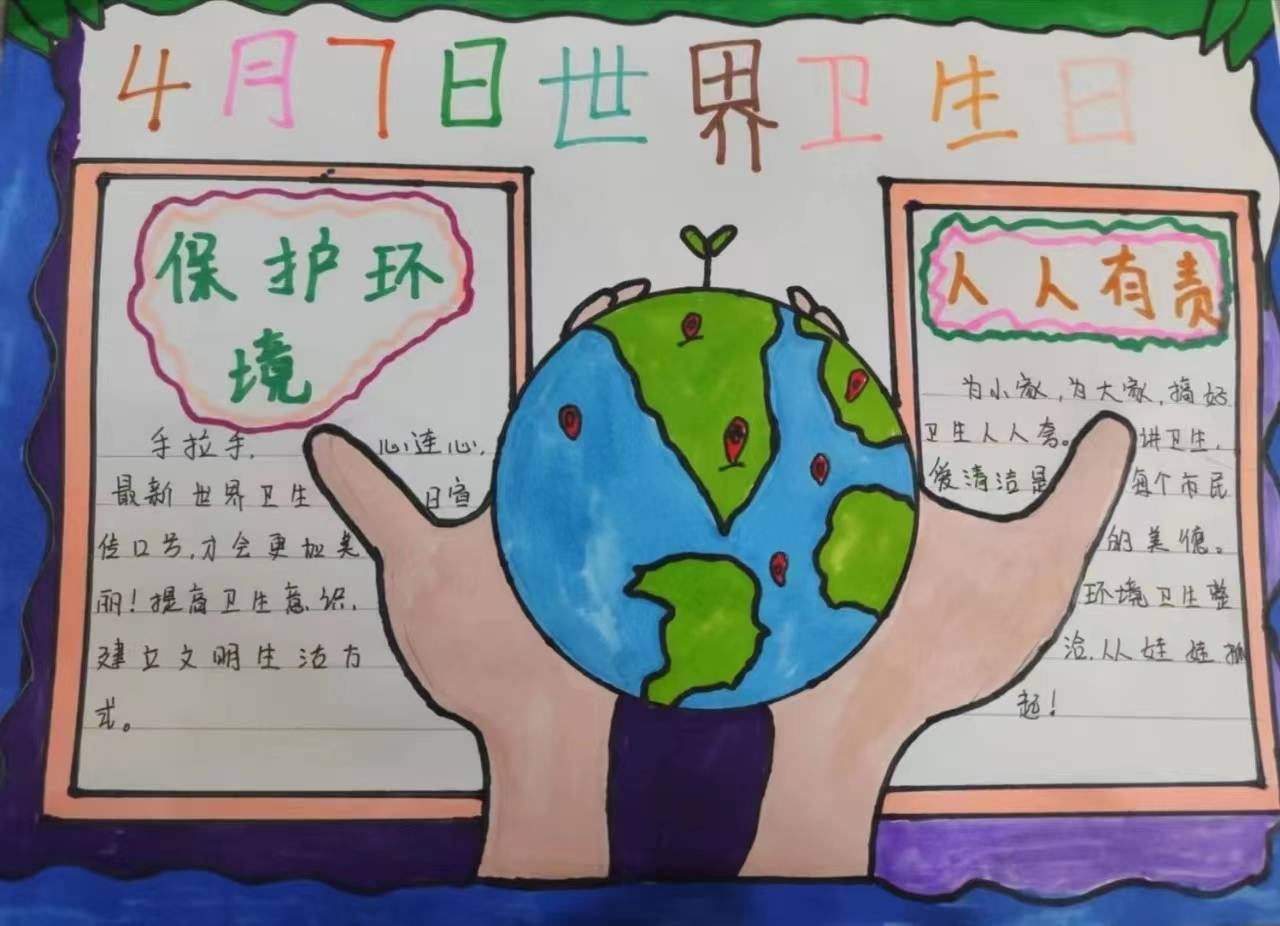 4月7日世界卫生日
保护环
境
手拉手, 心连心,
最新世界卫生日宣
传口号,才会更加美
丽!提高卫生意识,
建立文明生活方
式。
人人有责
为小家,为大家,搞好
卫生人人夸。讲卫生,
爱清洁是每个市民
的美德。
环境卫生整
洽,从娃娃抓
起!